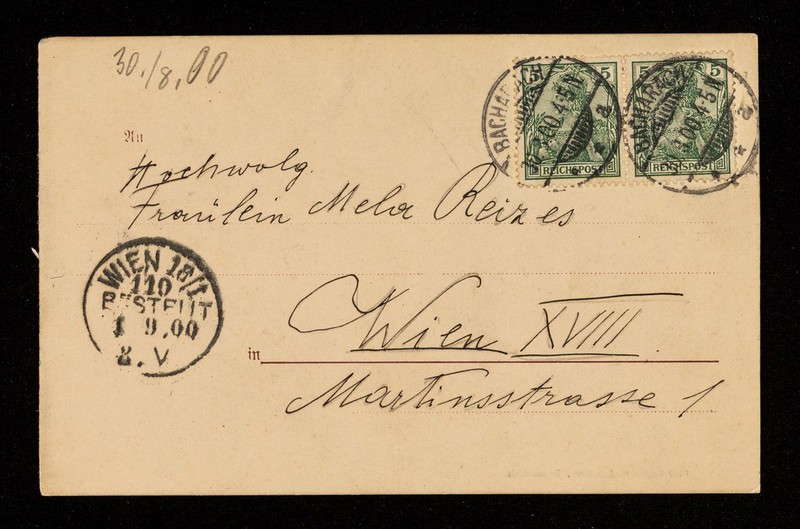 30./8.00
5 5
REICHSPOST REICHSPOST
BACHARACH
4-5N
a
BACHARACH
4-5N
a
An
Hochwolg.
Fräulein Mela Reizes
WIEN 18/1
110
BESTELLT
1 9.00
8.V
in Wien XVIII.
Martinsstrasse 1